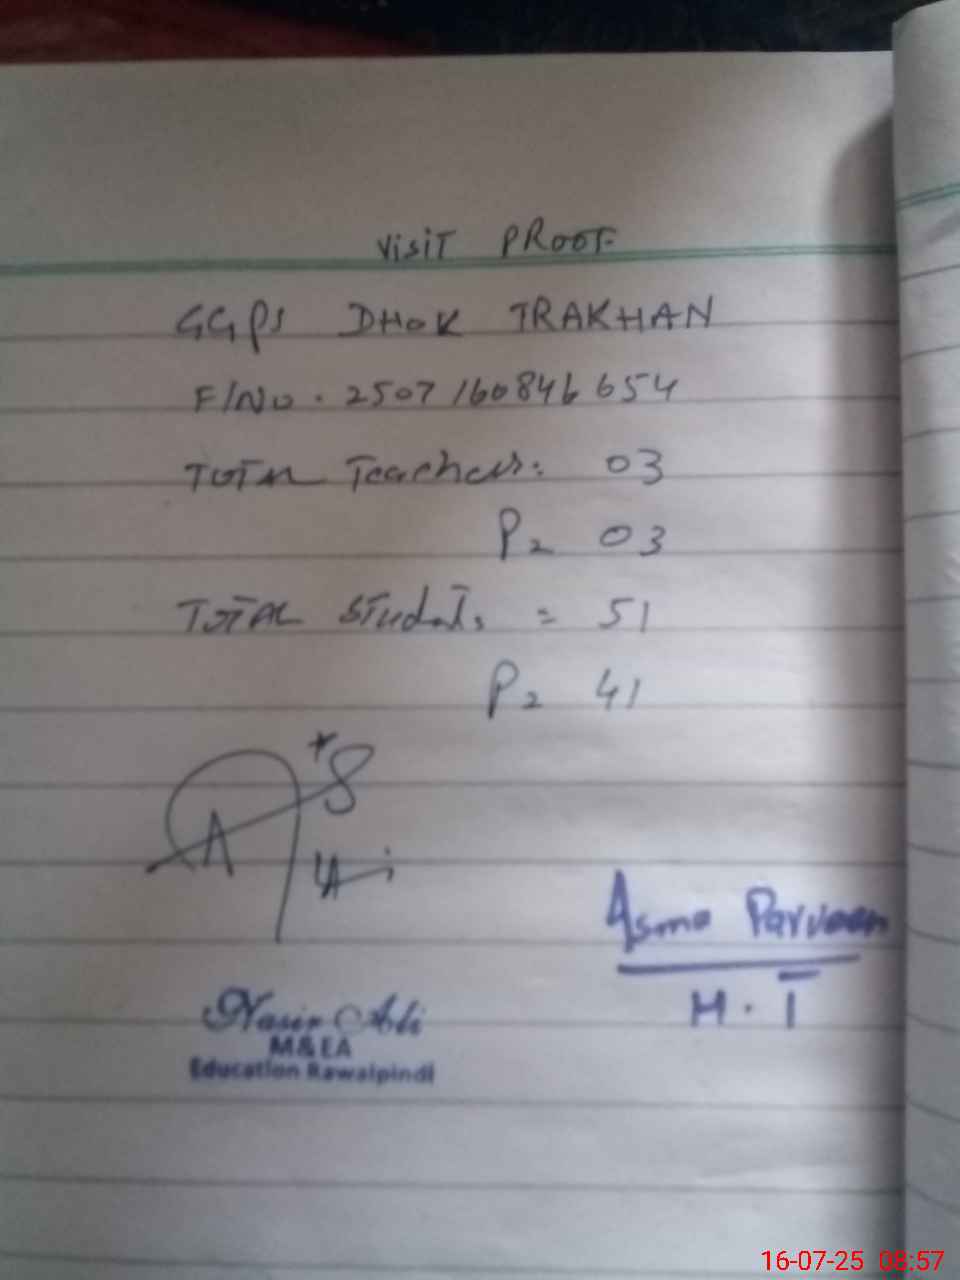 Visit PROOF
GGPS DHOK TRAKHAN
F/No. 2507160846654
TOTAL Teachers: 03
P2 03
TOTAL Students = 51
P2 41
Asma Parveen
H.T
Nasir Ali
M&EA
Education Rawalpindi
16-07-25 08:57